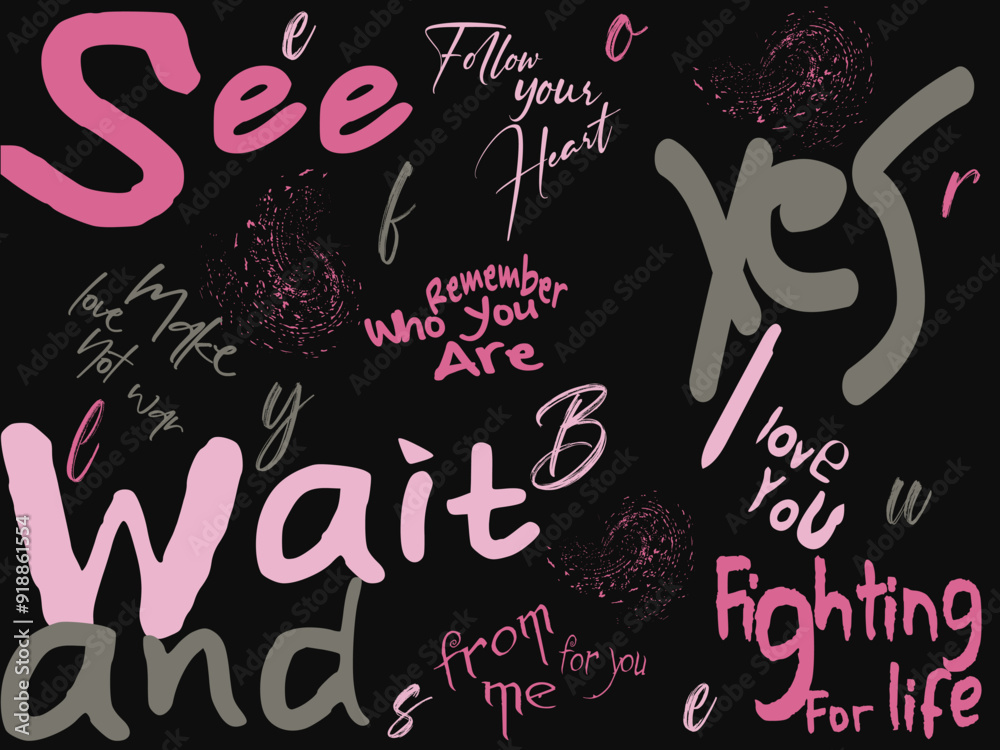 See
e
Follow
your
Heart
o
yes
r
f
make
love
not war
Remember
Who You
Are
e
y
B
Wait
I
love
you
w
and
from
me
for you
s
e
Fighting
For life
Adobe Stock | #918861554